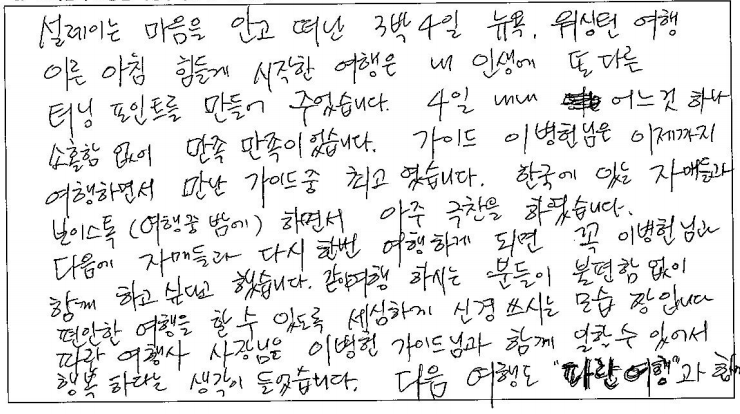 설레이는 마음을 안고 떠난 3박 4일 뉴욕, 워싱턴 여행
이른 아침 힘들게 시작한 여행은 내 인생에 또 다른
터닝 포인트를 만들어 주었습니다. 4일 내내 어느것 하나
소홀함 없이 만족 만족이었습니다. 가이드 이병헌님은 이제까지
여행하면서 만난 가이드중 최고 였습니다. 한국에 있는 자매들과
보이스톡 (여행중 밤에) 하면서 아주 극찬을 하였습니다.
다음에 자매들과 다시 한번 여행하게 되면 꼭 이병헌님과
함께 하고 싶다고 했습니다. 관광여행 하시는 분들이 불편함 없이
편안한 여행을 할 수 있도록 세심하게 신경 쓰시는 모습 짱입니다
파란 여행사 사장님은 이병헌 가이드님과 함께 일할 수 있어서
행복 하다는 생각이 들었습니다. 다음 여행도 "파란여행"과 함께